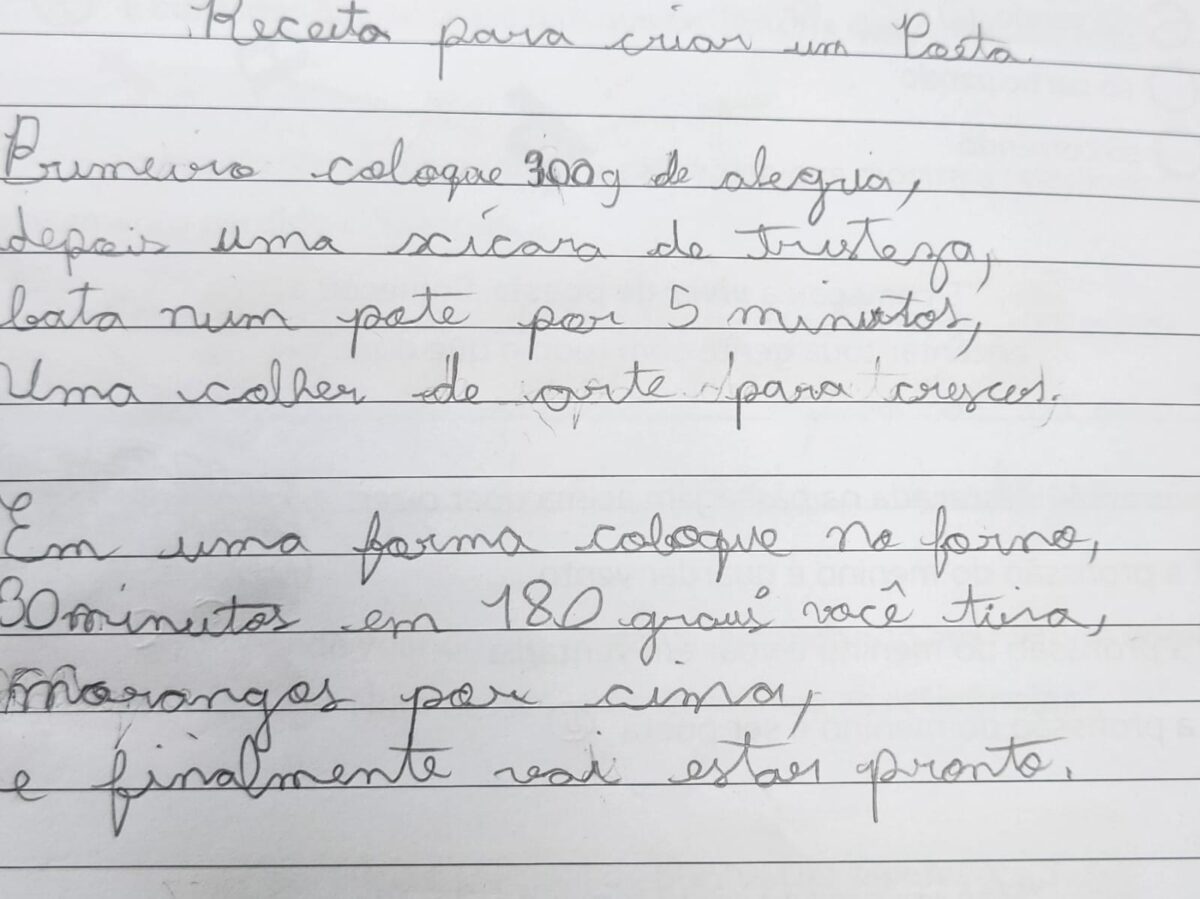 Receita para criar um Poeta
Primeiro coloque 300g de alegria,
depois uma xícara de tristeza,
bata num pote por 5 minutos,
Uma colher de arte para crescer.
Em uma forma coloque no forno,
30 minutos em 180 graus você tira,
Morangos por cima,
e finalmente vai estar pronto.